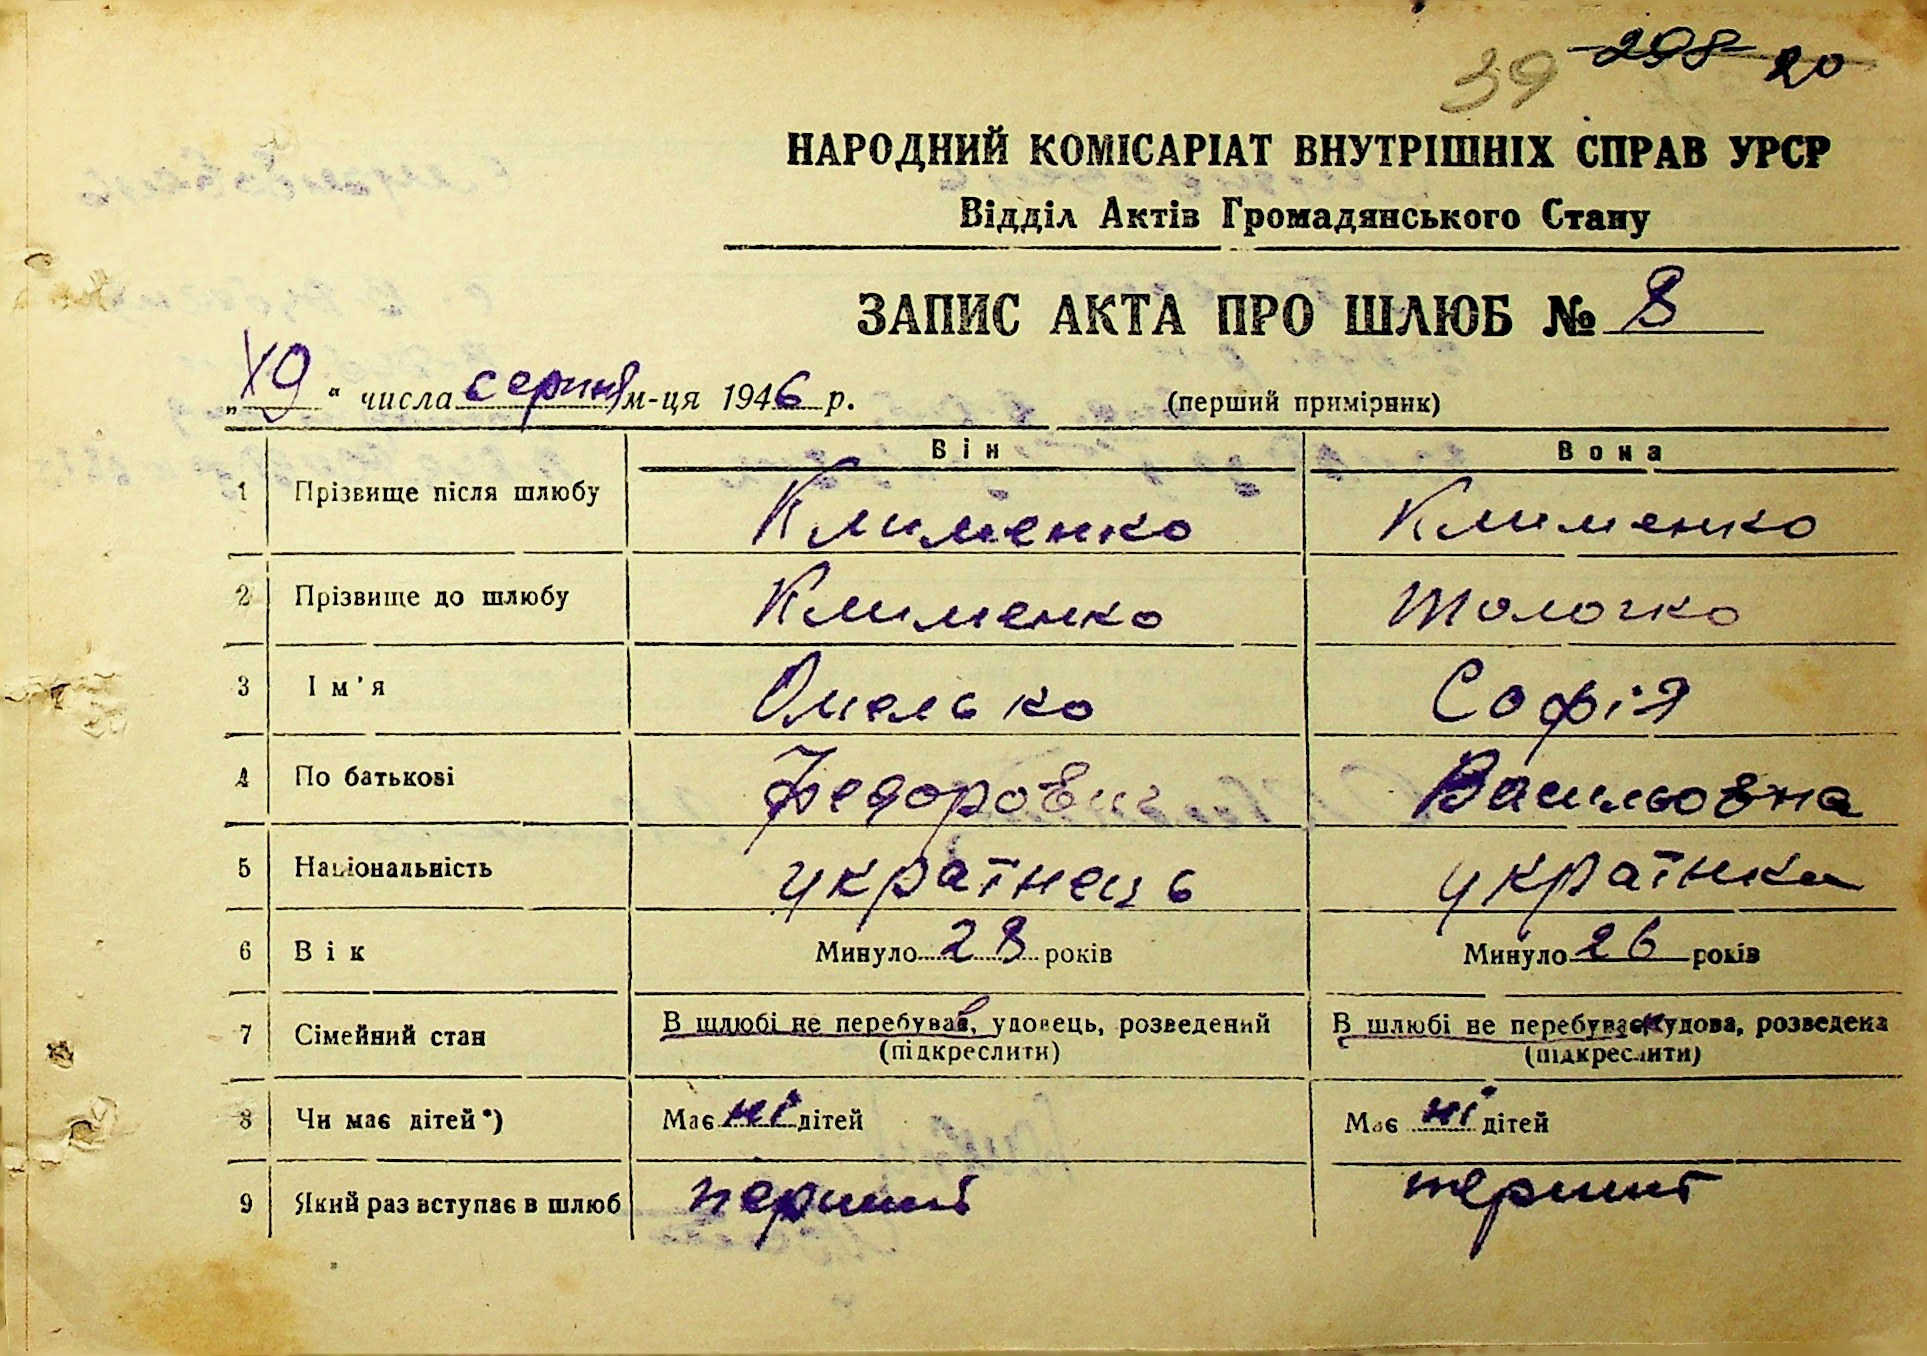 39 298 20
НАРОДНИЙ КОМІСАРІАТ ВНУТРІШНІХ СПРАВ УРСР
Відділ Актів Громадянського Стану
ЗАПИС АКТА ПРО ШЛЮБ № 8
„19“ числа серпня м-ця 1946 р. (перший примірник)
Він Вона
1 Прізвище після шлюбу Клименко Клименко
2 Прізвище до шлюбу Клименко Толочко
3 Ім'я Омелько Софія
4 По батькові Федорович Васильовна
5 Національність українець українка
6 Вік Минуло 28 років Минуло 26 років
7 Сімейний стан В шлюбі не перебував, удовець, розведений В шлюбі не перебуває, удова, розведена
(підкреслити) (підкреслити)
8 Чи має дітей*) Має ні дітей Має ні дітей
9 Який раз вступає в шлюб перший перший